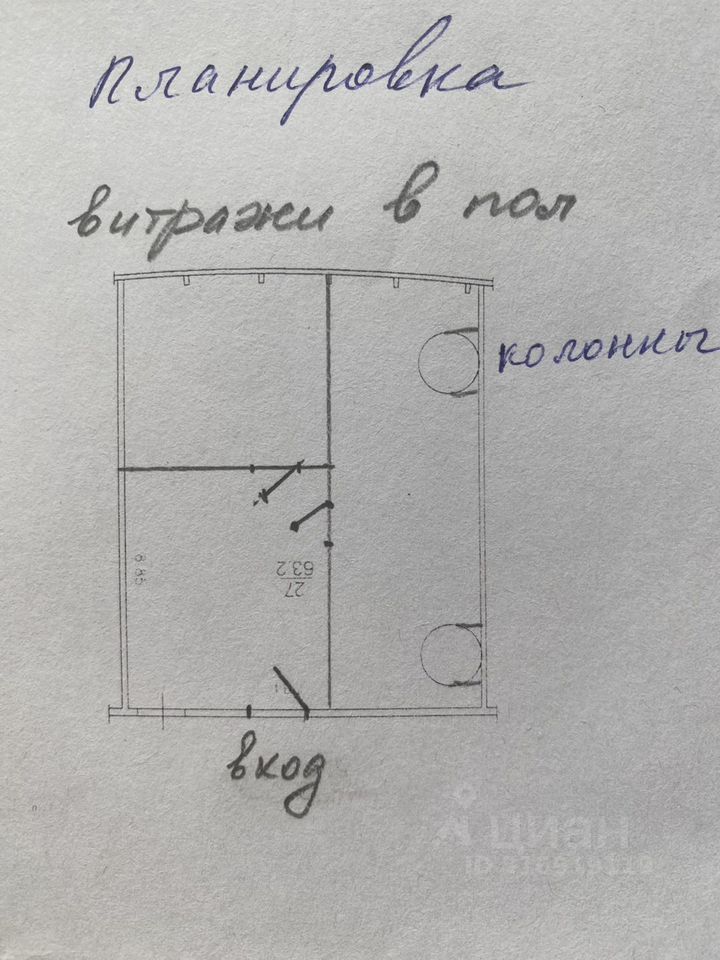 Планировка
витражи в пол
колонны
8.85
63.2
27
вход
ЦИАН